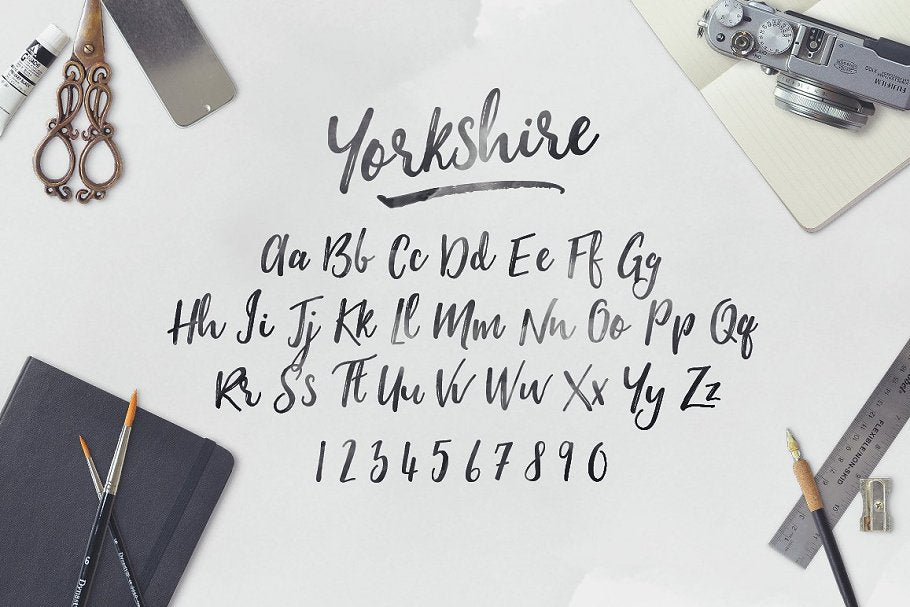 Yorkshire
Aa Bb Cc Dd Ee Ff Gg
Hh Ii Jj Kk Ll Mm Nn Oo Pp Qq
Rr Ss Tt Uu Vv Ww Xx Yy Zz
1 2 3 4 5 6 7 8 9 0
FUJIFILM
FLEXIBLE/NON-SKID